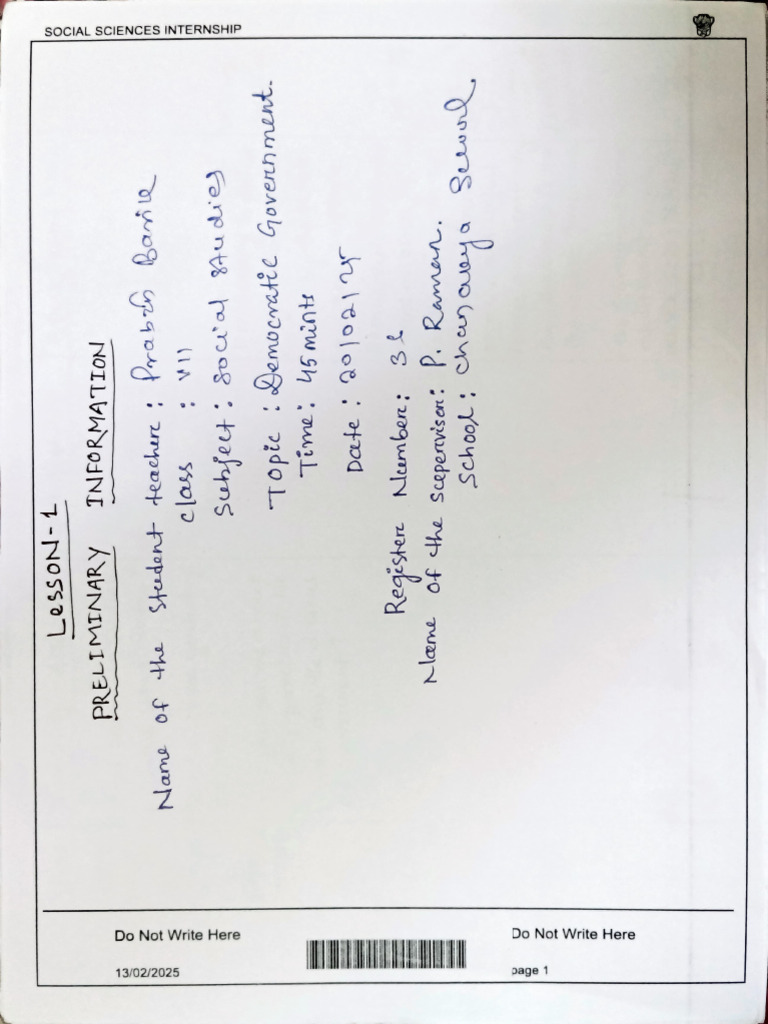 SOCIAL SCIENCES INTERNSHIP
LESSON-1
PRELIMINARY INFORMATION
Name of the student teacher : Prabin Barik
Class : VII
Subject : Social Studies
Topic : Democratic Government.
Time : 45 mints
Date : 20/02/25
Register Number : 32
Name of the supervisor : P. Raman.
School : Chanakya School
Do Not Write Here
Do Not Write Here
13/02/2025
page 1